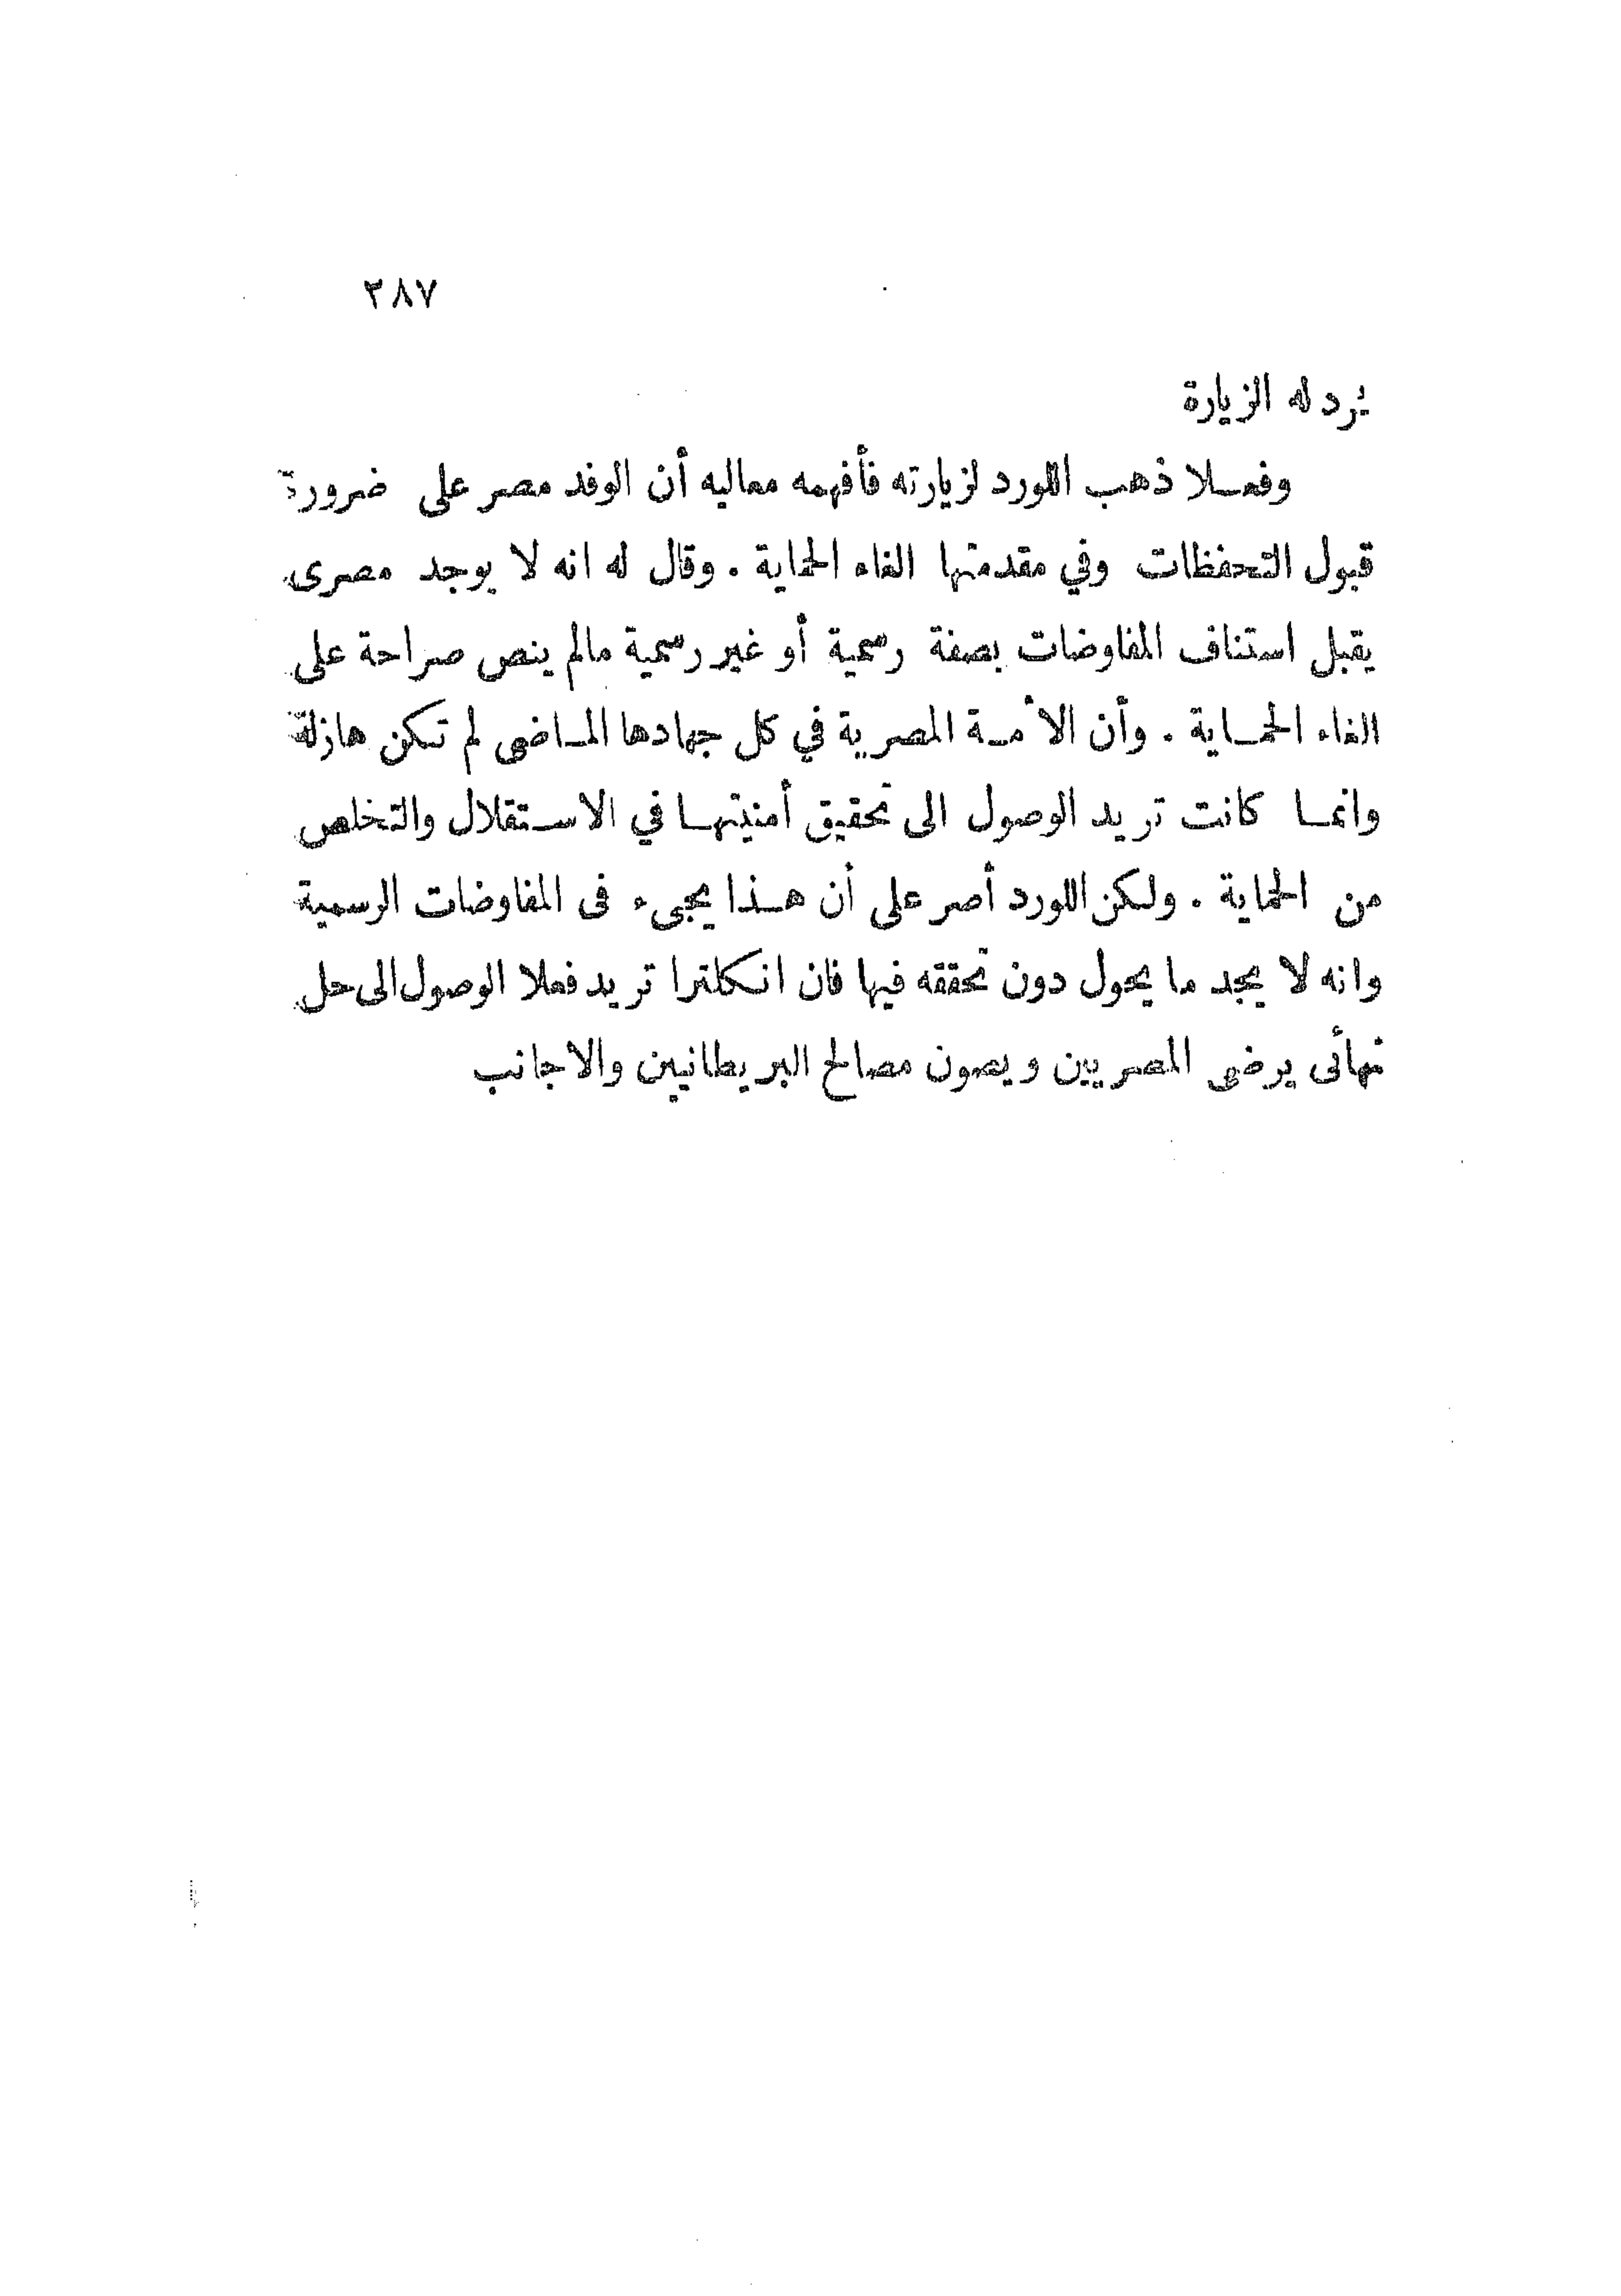 ٢٨٧
يرد له الزيارة
وفعلا ذهب اللورد لزيارته فأفهمه معاليه أن الوفد مصر على ضرورة
قبول التحفظات وفي مقدمتها الغاء الحماية . وقال له انه لا يوجد مصرى
يقبل استئناف المفاوضات بصفة رسمية أو غير رسمية مالم ينص صراحة على
الغاء الحماية . وأن الأمة المصرية في كل جهادها الماضى لم تكن هازلة
وانما كانت تريد الوصول الى تحقيق أمنيتها في الاستقلال والتخلص
من الحماية . ولكن اللورد أصر على أن هذا يجىء فى المفاوضات الرسمية
وانه لا يجد ما يحول دون تحققه فيها فان انكلترا تريد فعلا الوصول الى حل
نهائى يرضى المصريين ويصون مصالح البريطانيين والاجانب